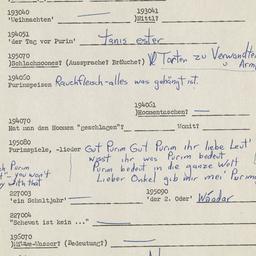 193040 193041
'Weihnachten' )Nittl?
194051
'der Tag vor Purim' Tanis ester
195070
)Schlachmones? (Aussprache? Bräuche?) Torten zu Verwandten
u Arme
194050
Purimspeisen Rauchfleisch - alles was gehängt ist.
194061
)Homentaschen?
194070
Hat man den Homen "geschlagen"? Womit?
195080
Purimspiele, -lieder Gut Purim Gut Purim ihr liebe Leut'
wisst ihr was Purim bedeut
Purim bedeut in die ganze Welt
Lieber Onkel gib mir mei' Purim
- you won't
with that
227003 195090
'ein Schaltjahr' 'der 2. Oder' Wáadar
227004
"Schewat ist kein ..."
195070
(Bedeutung?)